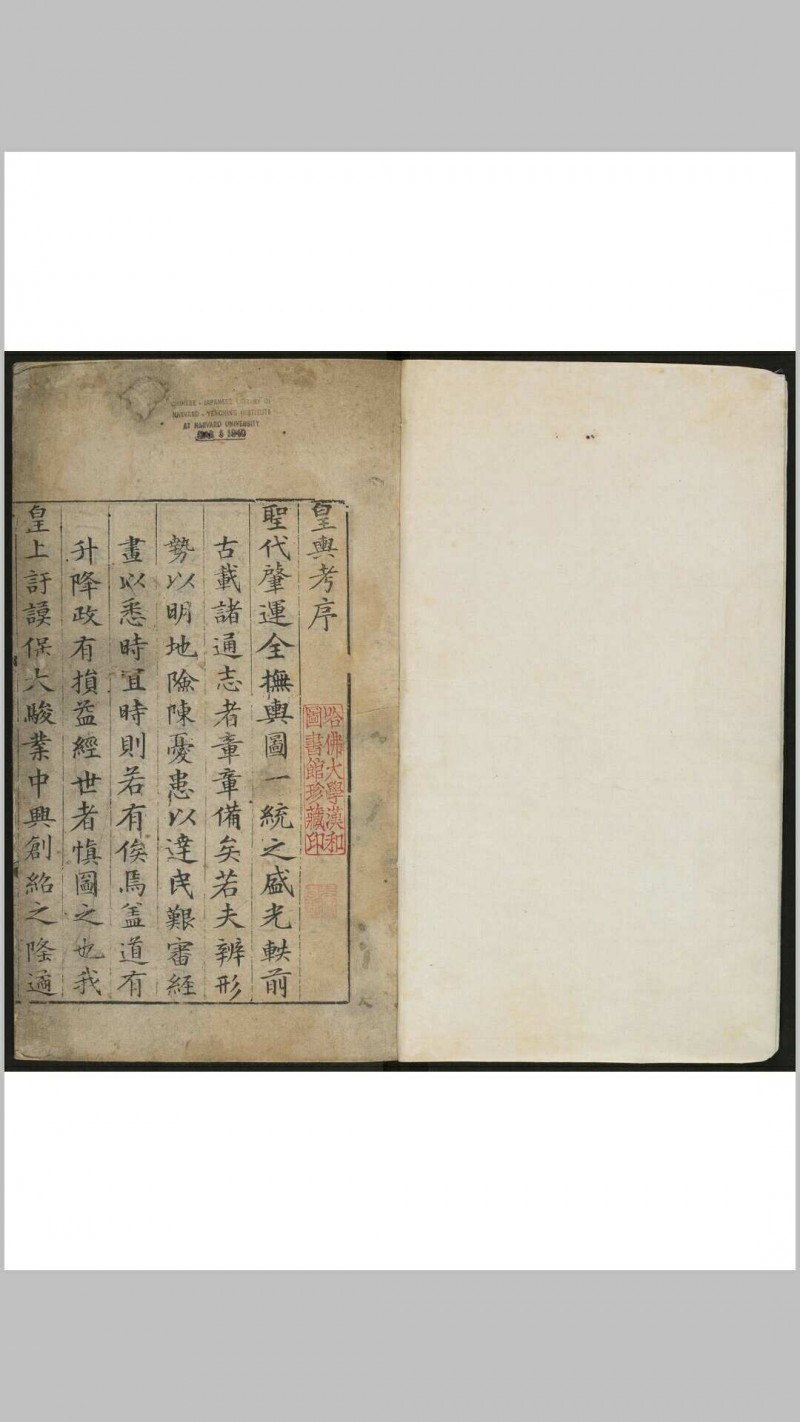 皇輿考序
聖代肇運全撫輿圖一統之盛光軼前
古載諸通志者章章備矣若夫辨形
勢以明地險陳憂患以達民艱審經
畫以悉時宜時則若有俟焉盖道有
升降政有損益經世者慎圖之也我
皇上訏謨保大駿業中興創紹之隆適
哈佛大學漢和
圖書館珍藏印
CHINESE - JAPANESE LIBRARY OF
HARVARD - YENCHING INSTITUTE
AT HARVARD UNIVERSITY